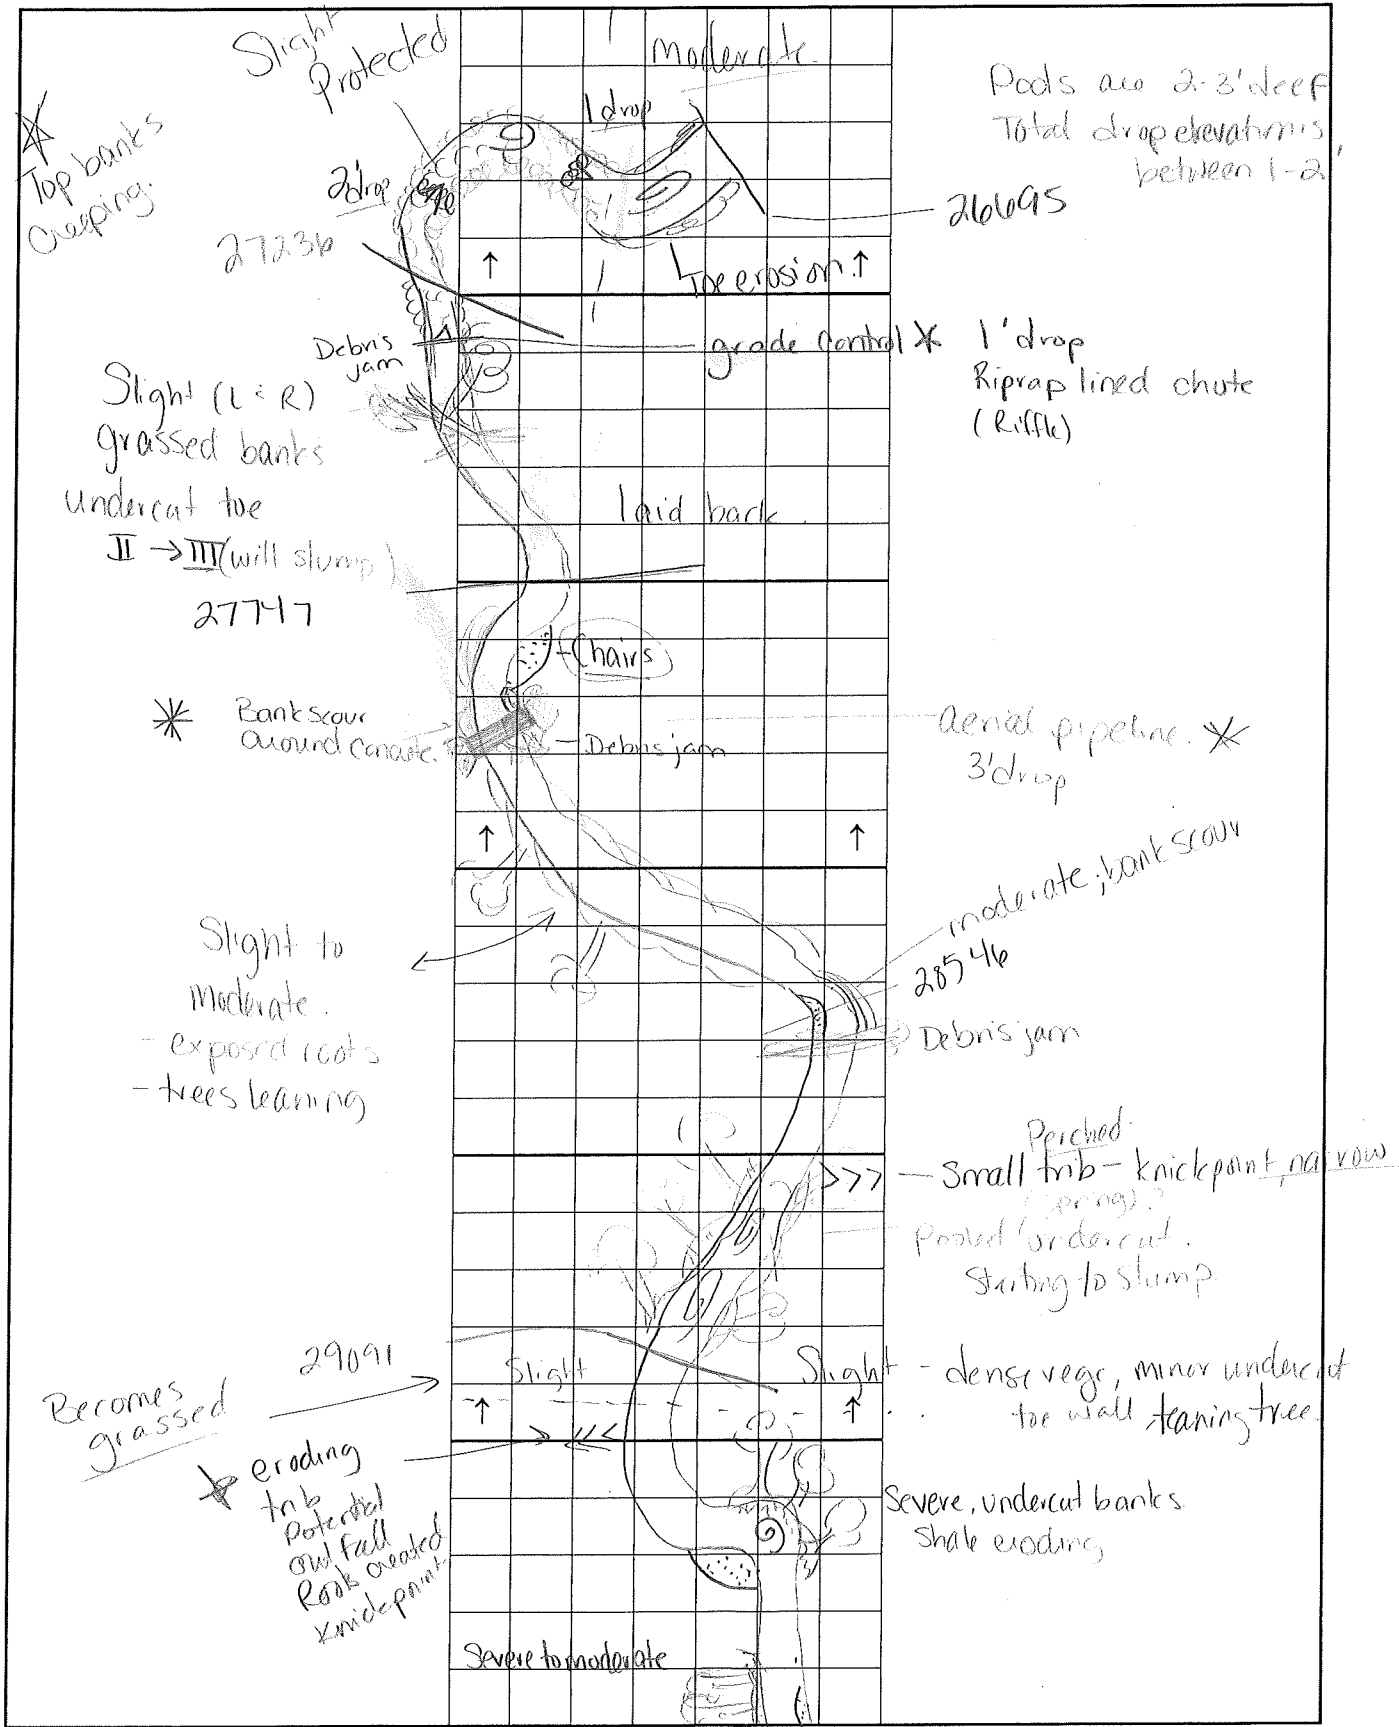 Slight
Protected
Moderate.
1' drop
Pools are 2-3' deep
Total drop elevations
between 1-2'
Top banks
creeping.
2' drop
26695
27236
Toe erosion.
Debris
jam
grade control
1' drop
Riprap lined chute
(Riffle)
Slight (L : R)
grassed banks
undercut toe
II → III (will slump)
laid back.
27747
Chairs
Bank scour
around concrete.
Debris jam
aerial pipeline.
3' drop
moderate; bank scour
28546
Slight to
Moderate.
- exposed roots
- trees leaning
Debris jam
Perched.
>>> - Small trib - knickpoint, narrow
(spring)?
Pooled undercut.
Starting to slump.
29091
Slight
Slight - dense vege, minor undercut
toe wall leaning tree.
Becomes
grassed
eroding
trib
Potential
outfall
Roots created
knickpoint
Severe, undercut banks.
Shale eroding
Severe to moderate